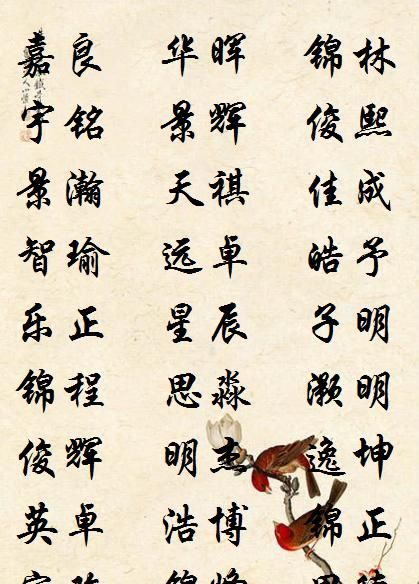 嘉良 华晖 锦林
宇铭 景辉 俊熙
景瀚 天祺 佳成
智瑜 远卓 皓予
乐正 星辰 子明
锦程 思淼 灏明
俊辉 明杰 逸坤
英卓 浩博 锦正